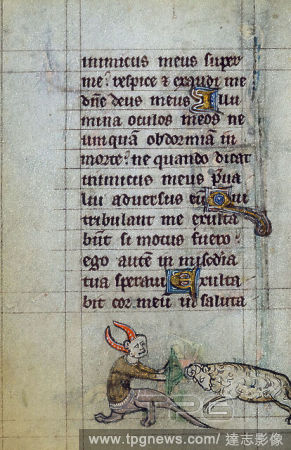 inimicus meus super
me: respice & exaudi me
dñe deus meus Illu
mina oculos meos ne
umquā obdormiam in
morte: ne quando dicat
inimicus meus preua
lui aduersus eū Qui
tribulant me exulta
būt si motus fuero:
ego autē in misc̄dia
tua speraui Exulta
bit cor meū in saluta
TPG
www.tpgnews.com/ 達志影像